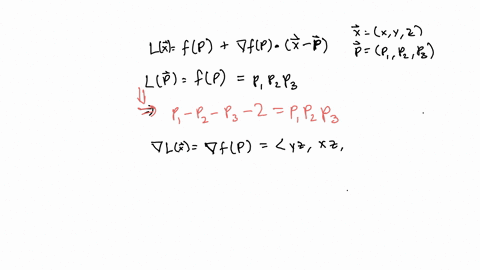 L(x⃗) = f(P) + ∇f(P) • (x⃗ − p⃗)
x⃗ = (x, y, z)
p⃗ = (P₁, P₂, P₃)
L(p⃗) = f(P) = P₁P₂P₃
⇒ P₁ − P₂ − P₃ − 2 = P₁P₂P₃
∇L(x⃗) = ∇f(P) = < yz, xz,